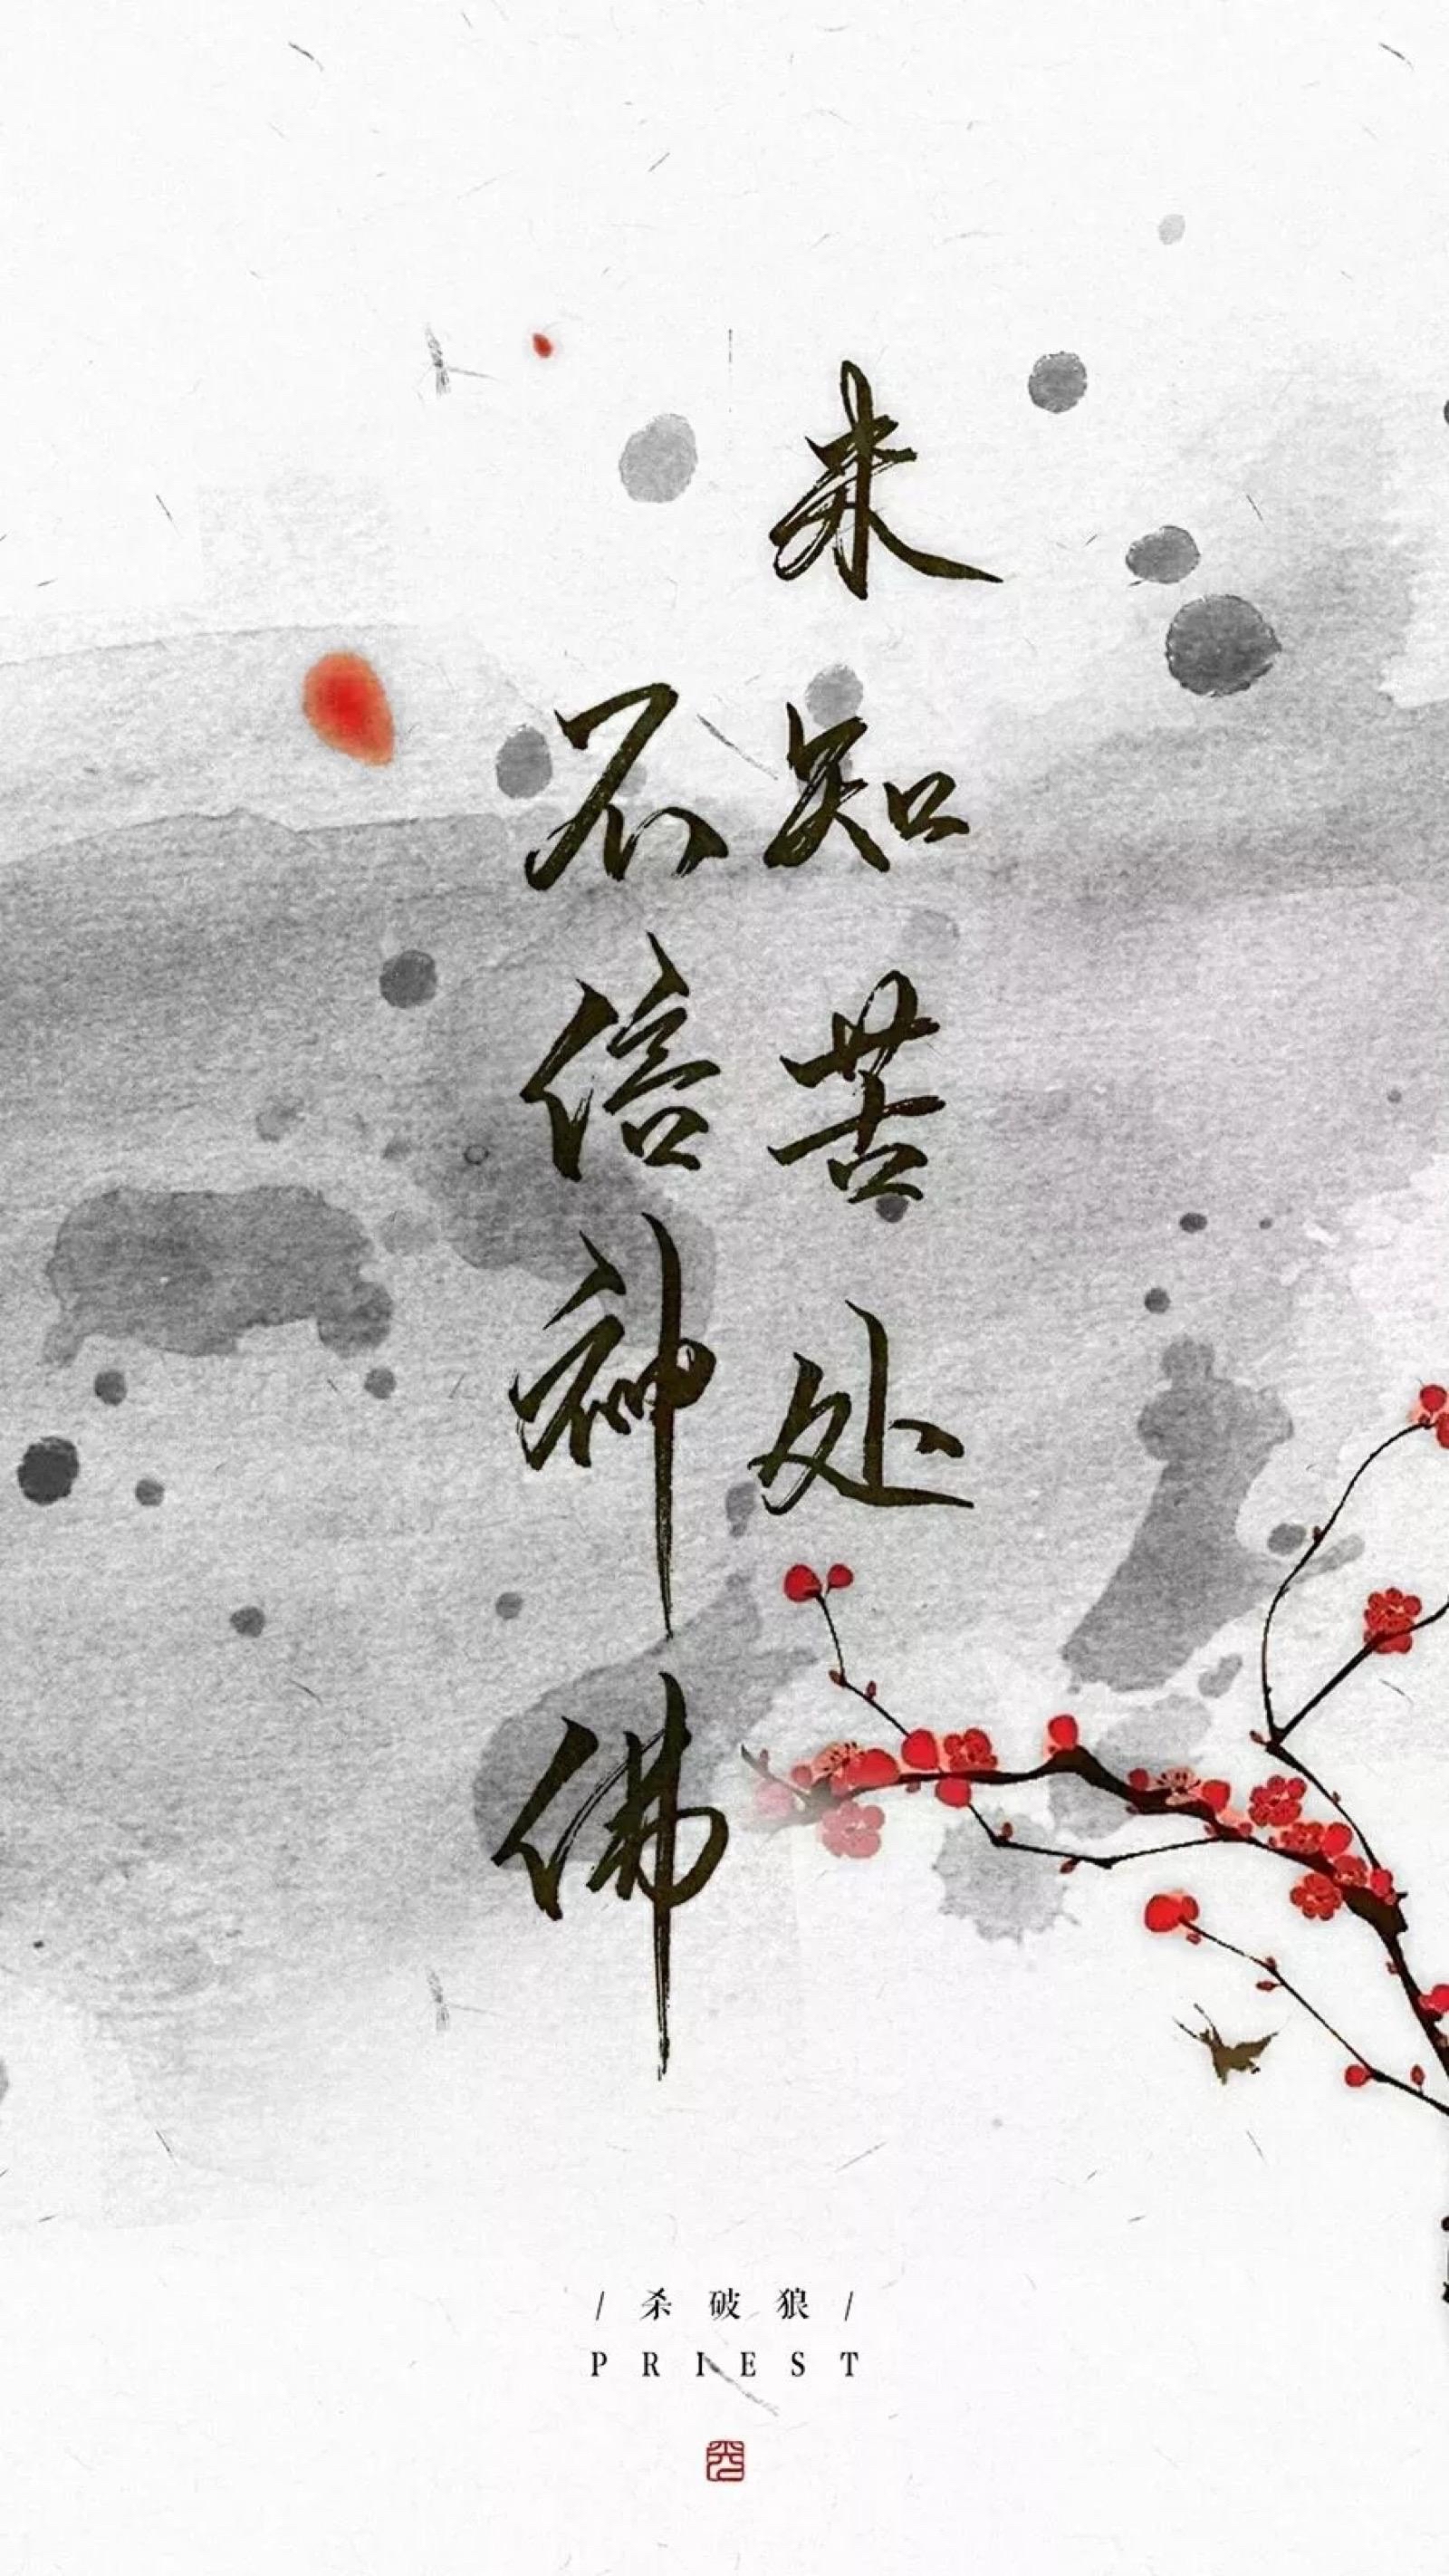 未知苦处
不信神佛
/ 杀破狼 /
PRIEST